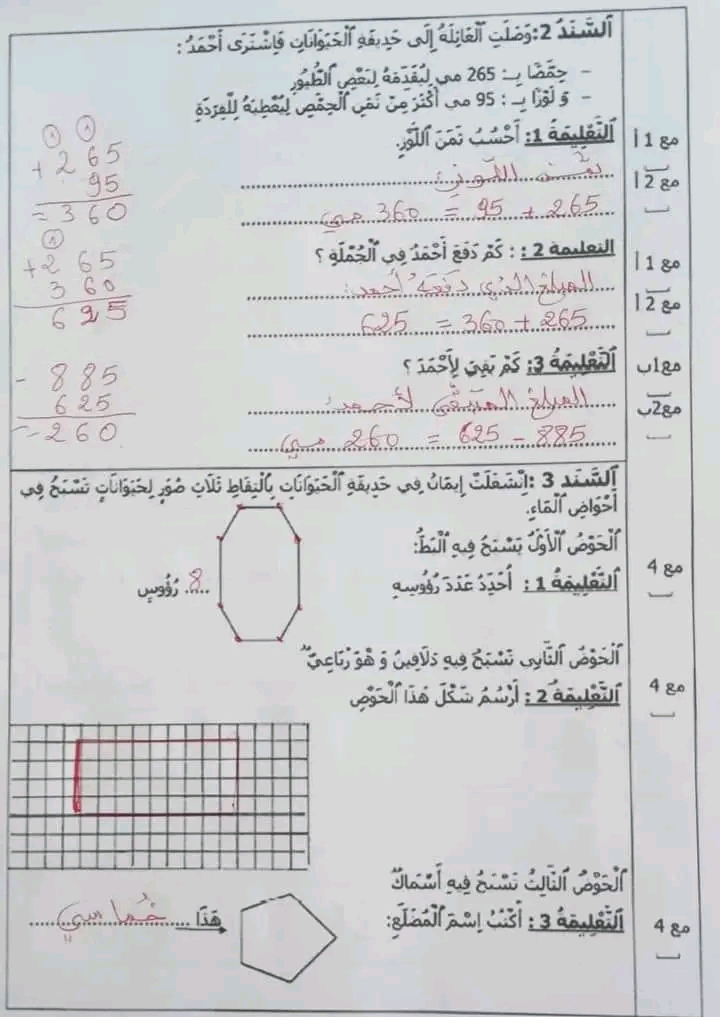 السَّنَدُ 2: وَصَلَتِ الْعَائِلَةُ إِلَى حَدِيقَةِ الْحَيَوَانَاتِ فَاشْتَرَى أَحْمَدُ :
- حِمَّصًا بِـ: 265 مي لِيُقَدِّمَهُ لِبَعْضِ الطُّيُورِ
- وَ لَوْزًا بِـ : 95 مي أَكْثَرَ مِنْ ثَمَنِ الْحِمَّصِ لِيُعْطِيَهُ لِلْقِرَدَةِ
التَّعْلِيمَةُ 1: أَحْسُبُ ثَمَنَ اللَّوْزِ.
مع 1 أ
ثمن اللّوز:
مع 2 أ
265 + 95 = 360 مي
+ 265
95
= 360
التعليمة 2 : : كَمْ دَفَعَ أَحْمَدُ فِي الْجُمْلَةِ ؟
مع 1 أ
المبلغ الذي دفعه أحمد:
مع 2 أ
265 + 360 = 625
+ 265
360
625
التَّعْلِيمَةُ 3: كَمْ بَقِيَ لِأَحْمَدَ ؟
مع1ب
المبلغ المتبقّي لأحمد:
مع2ب
885 - 625 = 260 مي
- 885
625
= 260
السَّنَد 3 :اِنْشَغَلَتْ إِيمَانُ فِي حَدِيقَةِ الْحَيَوَانَاتِ بِالْتِقَاطِ ثَلَاثِ صُوَرٍ لِحَيَوَانَاتٍ تَسْبَحُ فِي
أَحْوَاضِ الْمَاءِ.
الْحَوْضُ الْأَوَّلُ يَسْبَحُ فِيهِ الْبَطُّ:
التَّعْلِيمَةُ 1 : أُحَدِّدُ عَدَدَ رُؤُوسِهِ
8 رُؤُوسٍ
مع 4
الْحَوْضُ الثَّانِي تَسْبَحُ فِيهِ دَلَافِينُ وَ هْوَ رُبَاعِيٌّ
التَّعْلِيمَةُ 2 : أَرْسُمُ شَكْلَ هَذَا الْحَوْضِ
مع 4
الْحَوْضُ الثَّالِثُ تَسْبَحُ فِيهِ أَسْمَاكٌ
التَّعْلِيمَةُ 3 : أَكْتُبُ اِسْمَ الْمُضَلَّعِ:
هَذَا خُماسي
مع 4